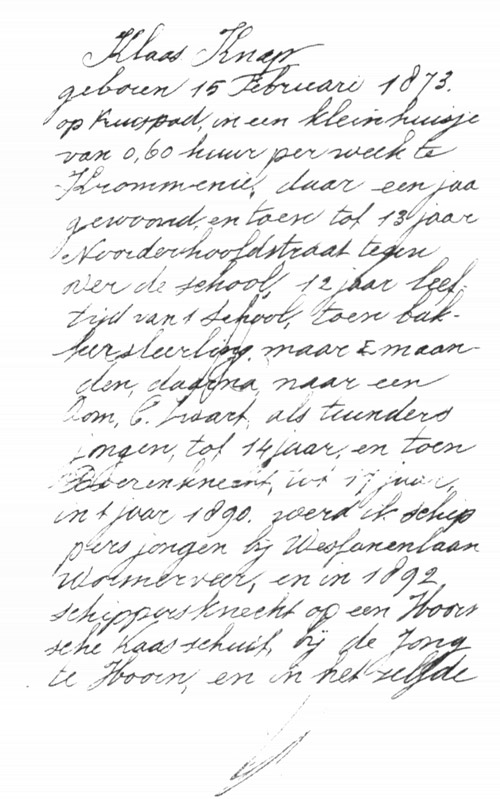 Klaas Knap
geboren 15 Februari 1873.
op Kruispad, in een klein huisje
van 0,60 huur per week te
Krommenie, daar een jaa
gewoond, en toen tot 13 jaar
Noorderhoofdstraat tegen
over de school, 12 jaar leef-
tijd van t School, toen bak-
kersleerling, maar 2 maan-
den, daarna naar een
Oom, C. Swart, als tuinders
jongen, tot 14 jaar, en toen
Boerenknecht, tot 17 jaar,
in t jaar 1890. werd ik schip
pers jongen bij Wesfanenlaan
Wormerveer, en in 1892
schippersknecht op een Hoorn
sche kaasschuit, bij de Jong
te Hoorn, en in het zelfde